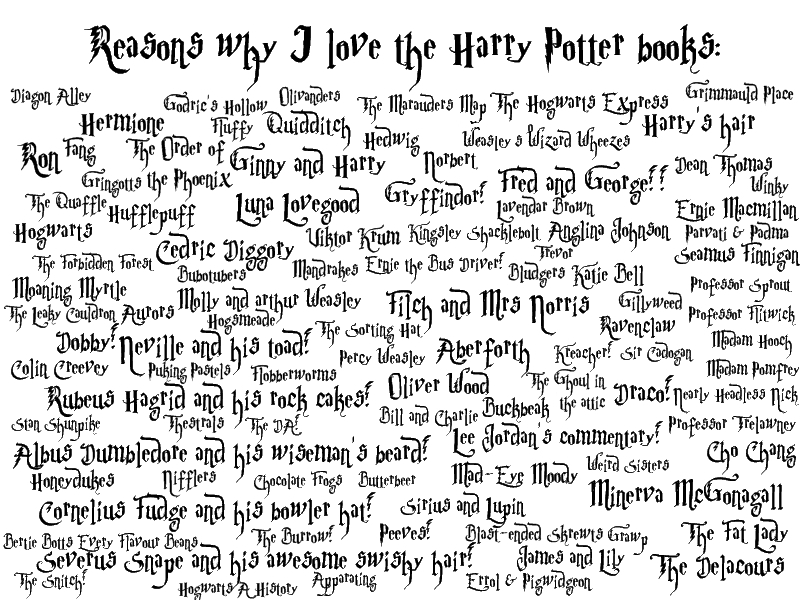 Reasons why I love the Harry Potter books:
Diagon Alley Godric's Hollow Olivanders The Marauders Map The Hogwarts Express Grimmauld Place
Hermione Fluffy Quidditch Hedwig Weasley's Wizard Wheezes Harry's hair
Ron Fang The Order of the Phoenix Ginny and Harry Norbert Dean Thomas
Gringotts Gryffindor! Fred and George!! Winky
The Quaffle Hufflepuff Luna Lovegood Lavendar Brown Ernie Macmillan
Hogwarts Viktor Krum Kingsley Shacklebolt Anglina Johnson Parvati & Padma
The Forbidden Forest Cedric Diggory Trevor Seamus Finnigan
Bubotubers Mandrakes Ernie the Bus Driver! Bludgers Katie Bell
Moaning Myrtle Molly and arthur Weasley Filch and Mrs Norris Gillyweed Professor Sprout
The Leaky Cauldron Aurors Hogsmeade The Sorting Hat Ravenclaw Professor Flitwick
Dobby! Neville and his toad! Percy Weasley Aberforth Kreacher! Sir Cadogan Madam Hooch
Colin Creevey Puking Pastels Flobberworms Madam Pomfrey
Rubeus Hagrid and his rock cakes! Oliver Wood The Ghoul in the attic Draco! Nearly Headless Nick
Stan Shunpike Thestrals The DA! Bill and Charlie Buckbeak Professor Trelawney
Albus Dumbledore and his wiseman's beard! Lee Jordan's commentary! Cho Chang
Honeydukes Nifflers Chocolate Frogs Butterbeer Mad-Eye Moody Weird Sisters
Cornelius Fudge and his bowler hat! Sirius and Lupin Minerva McGonagall
Bertie Botts Every Flavour Beans The Burrow! Peeves! Blast-ended Skrewts Grawp The Fat Lady
Severus Snape and his awesome swishy hair! James and Lily The Delacours
The Snitch! Hogwarts A History Apparating Errol & Pigwidgeon